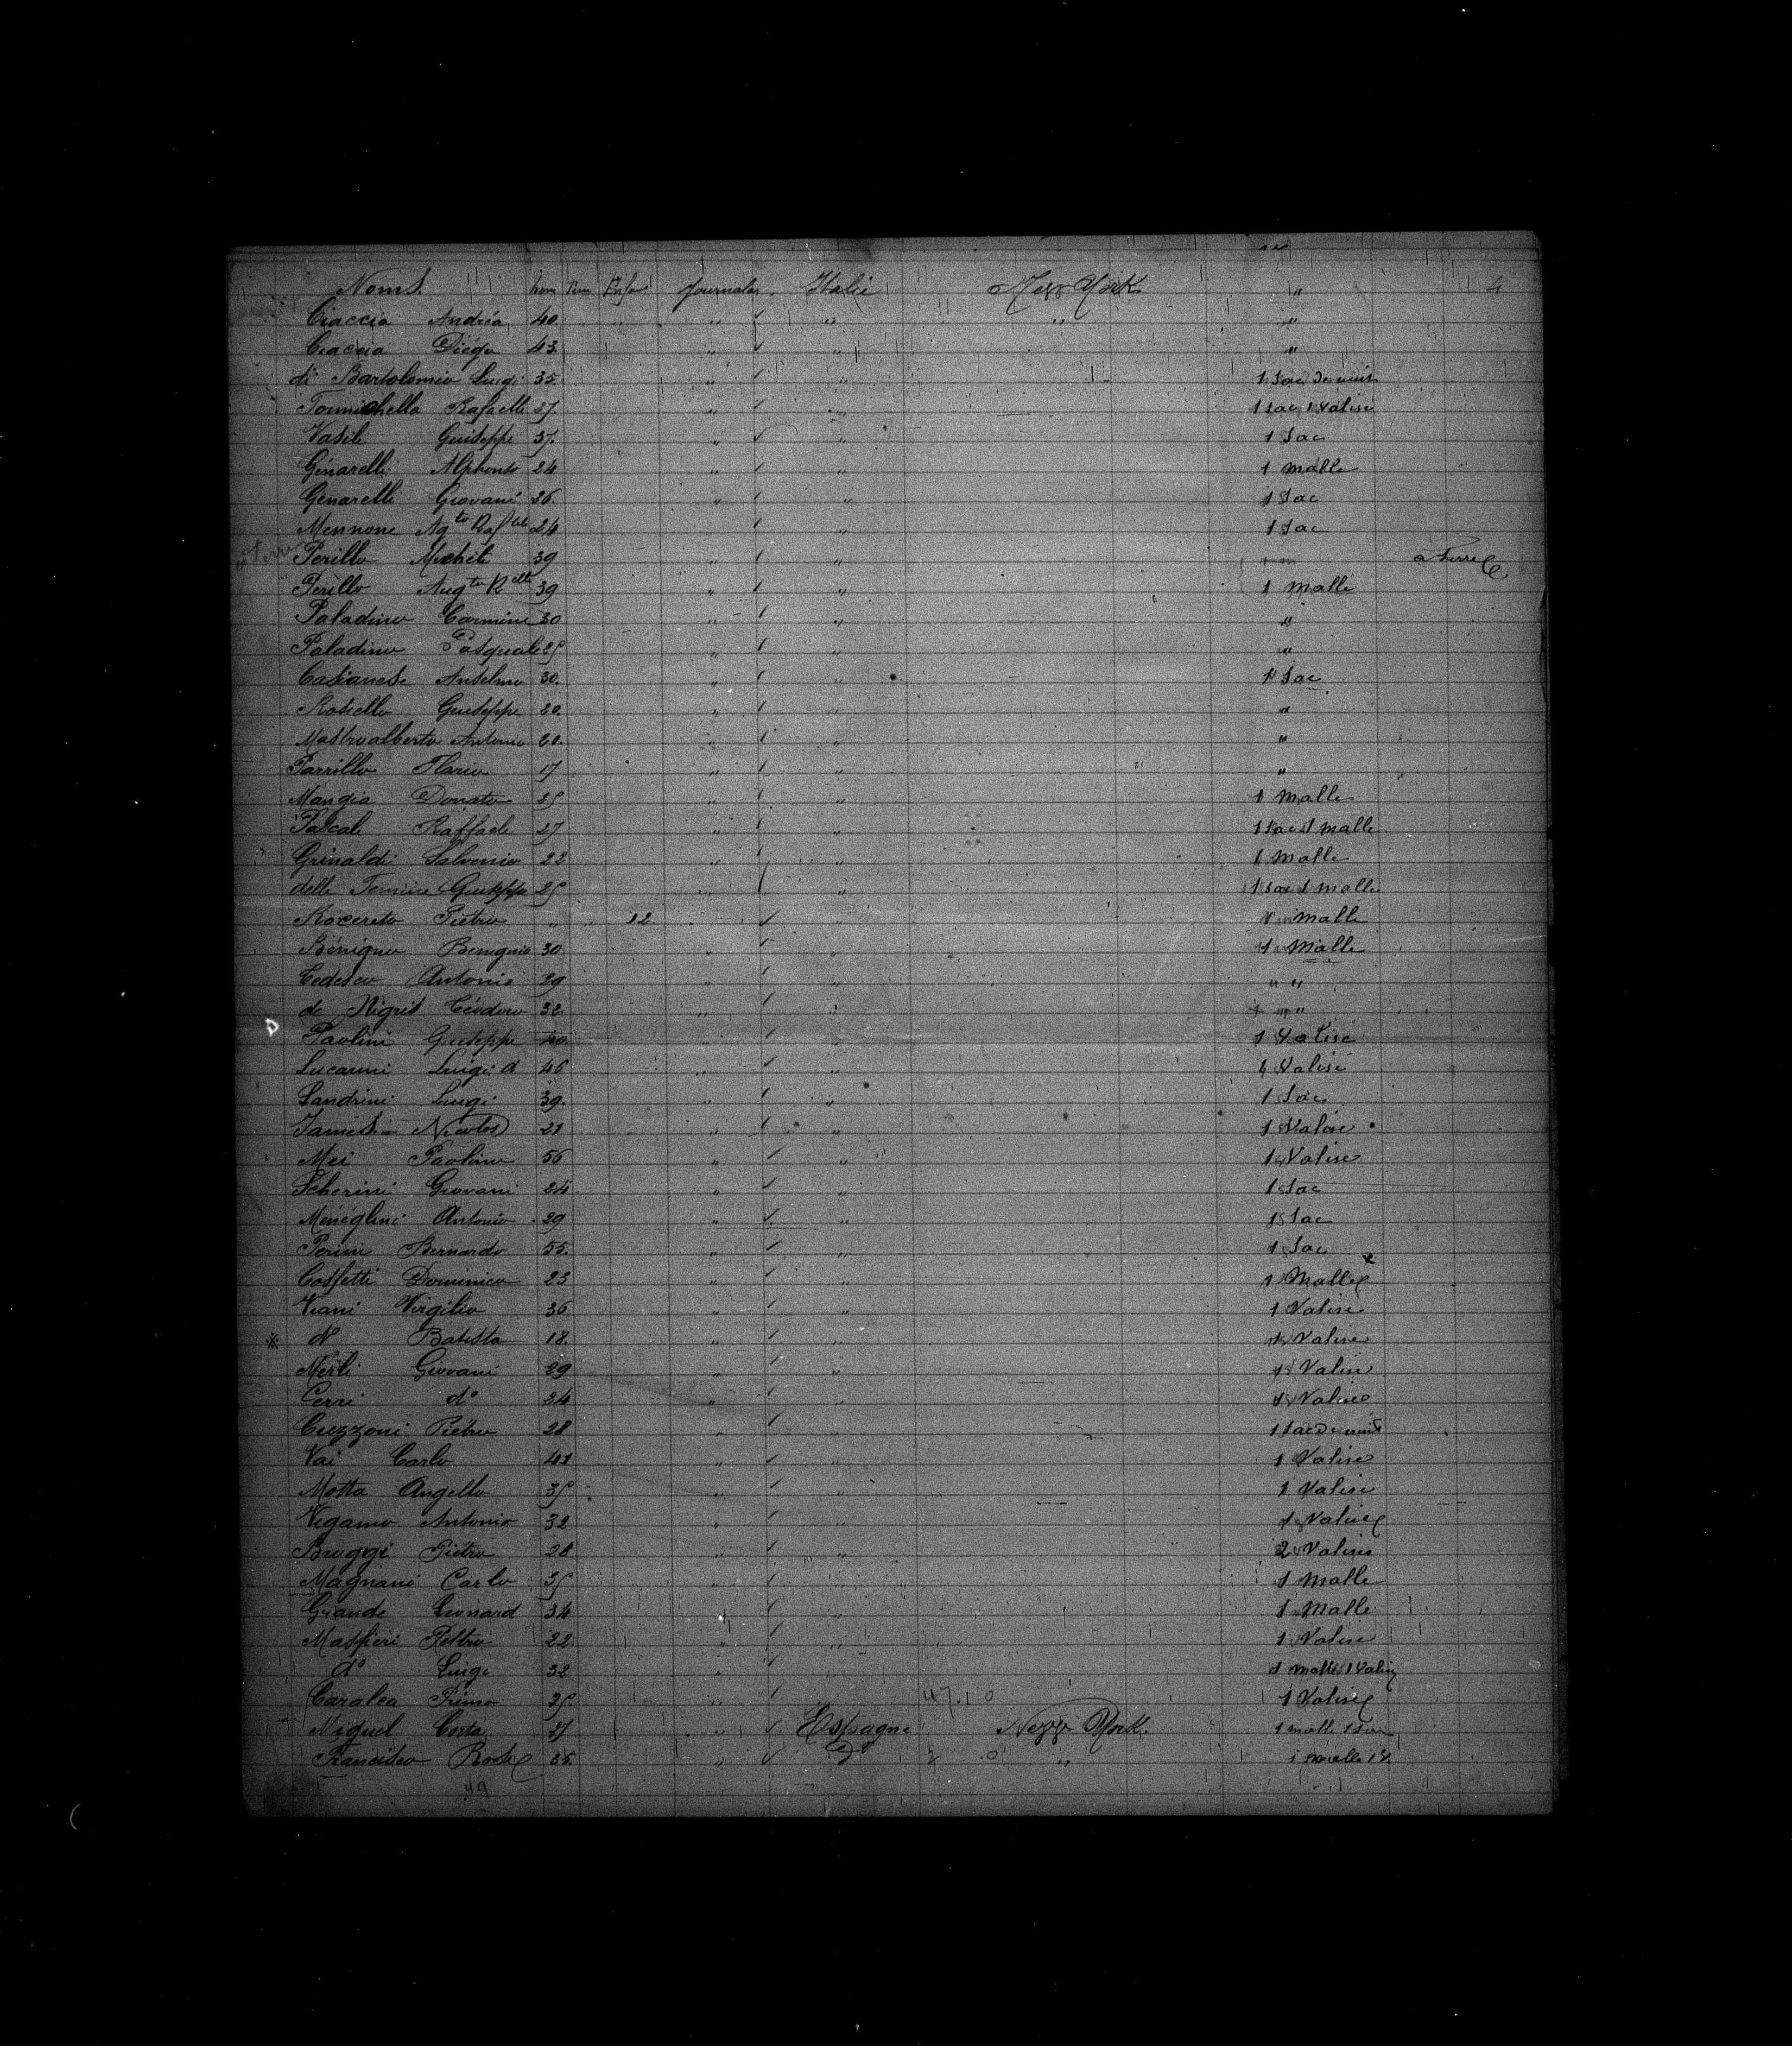 Noms. hom Enfan Journalier Italie New York " 4
Ciaccia Andréa 40. " " " "
Ciaccia Diégo 43. " " "
di Bartolomeo Luigi 35. " " 1 Sac de nuit
Rafaelle 27. " " 1 sac 1 Valise
Vasile Guiseppe 37. " " 1 Sac
Génarelli Alphonso 24 " " 1 malle
Génarelli Giovani 26. " " 1 Sac
Mennone Ag to Raf lle 24 " 1 Sac
Perillo Michele 39 " " a terre
Perillo Aug to R elle 39 " " 1 Malle
Paladino Carmine 30 " " "
Paladino Pasquale 25 " " "
Casianese Anselmo 30. " " 1 Sac
Rosiello Guiseppe 20. " " "
Mastroalberto Antonio 20. " " "
Parrillo Ilario 17 " " "
Mangia Donato 35 " " 1 Malle
Pascale Raffaele 27 " " 1 Sac 1 malle
Grinaldi Salvenio 22 " " 1 Malle
delle Guiseppe 25 " " 1 sac 1 malle
Rocereto Pietro " " 12 " 1 Malle
Bénigno Benigno 30 " " 1 Malle
Tedesco Antonio 29 " " " "
de Nigris Téodoro 32 " " "
Paolini Guiseppe 40. " " 1 Valise
Lucarini Luigi d 46 " " 1 Valise
Sandrini Luigi 39. " " 1 Sac
Nicolas 21 " " 1 Valise
Mei Paolino 56 " " 1 Valise
Scherini Giovani 24 " " 1 Sac
Méneghini Antonio 29 " " 1 Sac
Perini Bernardo 55. " " 1 Sac
Cossetti Dominico 23 " " 1 Malle
Viani Virgilio 36 " " 1 Valise
do Batista 18. " " 1 Valise
Merli Giovani 29 " " 1 Valise
Cerri do 24 " " 1 Valise
Cuzzoni Piétro 28 " " 1 sac de nuit
Vai Carlo 41 " " 1 Valise
Motta Angello 35 " " 1 Valise
Vegamo Antonio 32 " " 1 Valise
Bruggi Piétro 28 " " 2 Valises
Magnani Carlo 35 " " 1 Malle
Grande Leonard 34 " " 1 Malle
Masfieri Piétro 22. " " 1 Valise
do Luigi 32 " " 1 malle 1 Valise
Caralca Primo 35 " 47.10 1 Valise
Miguel Costa 37 " Espagne New York. 1 malle 1 sac
Francisco 35. " do " 1 malle 1 V.
49